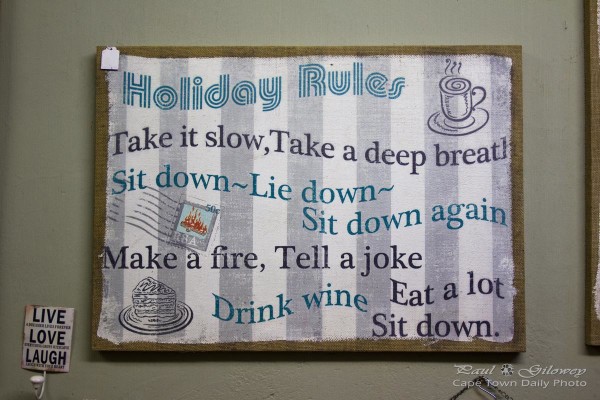 Holiday Rules
Take it slow,Take a deep breath
Sit down~Lie down~
Sit down again
50
Make a fire, Tell a joke
Eat a lot
Drink wine
Sit down.
LIVE
LOVE
LAUGH
Paul Gilowey
Cape Town Daily Photo